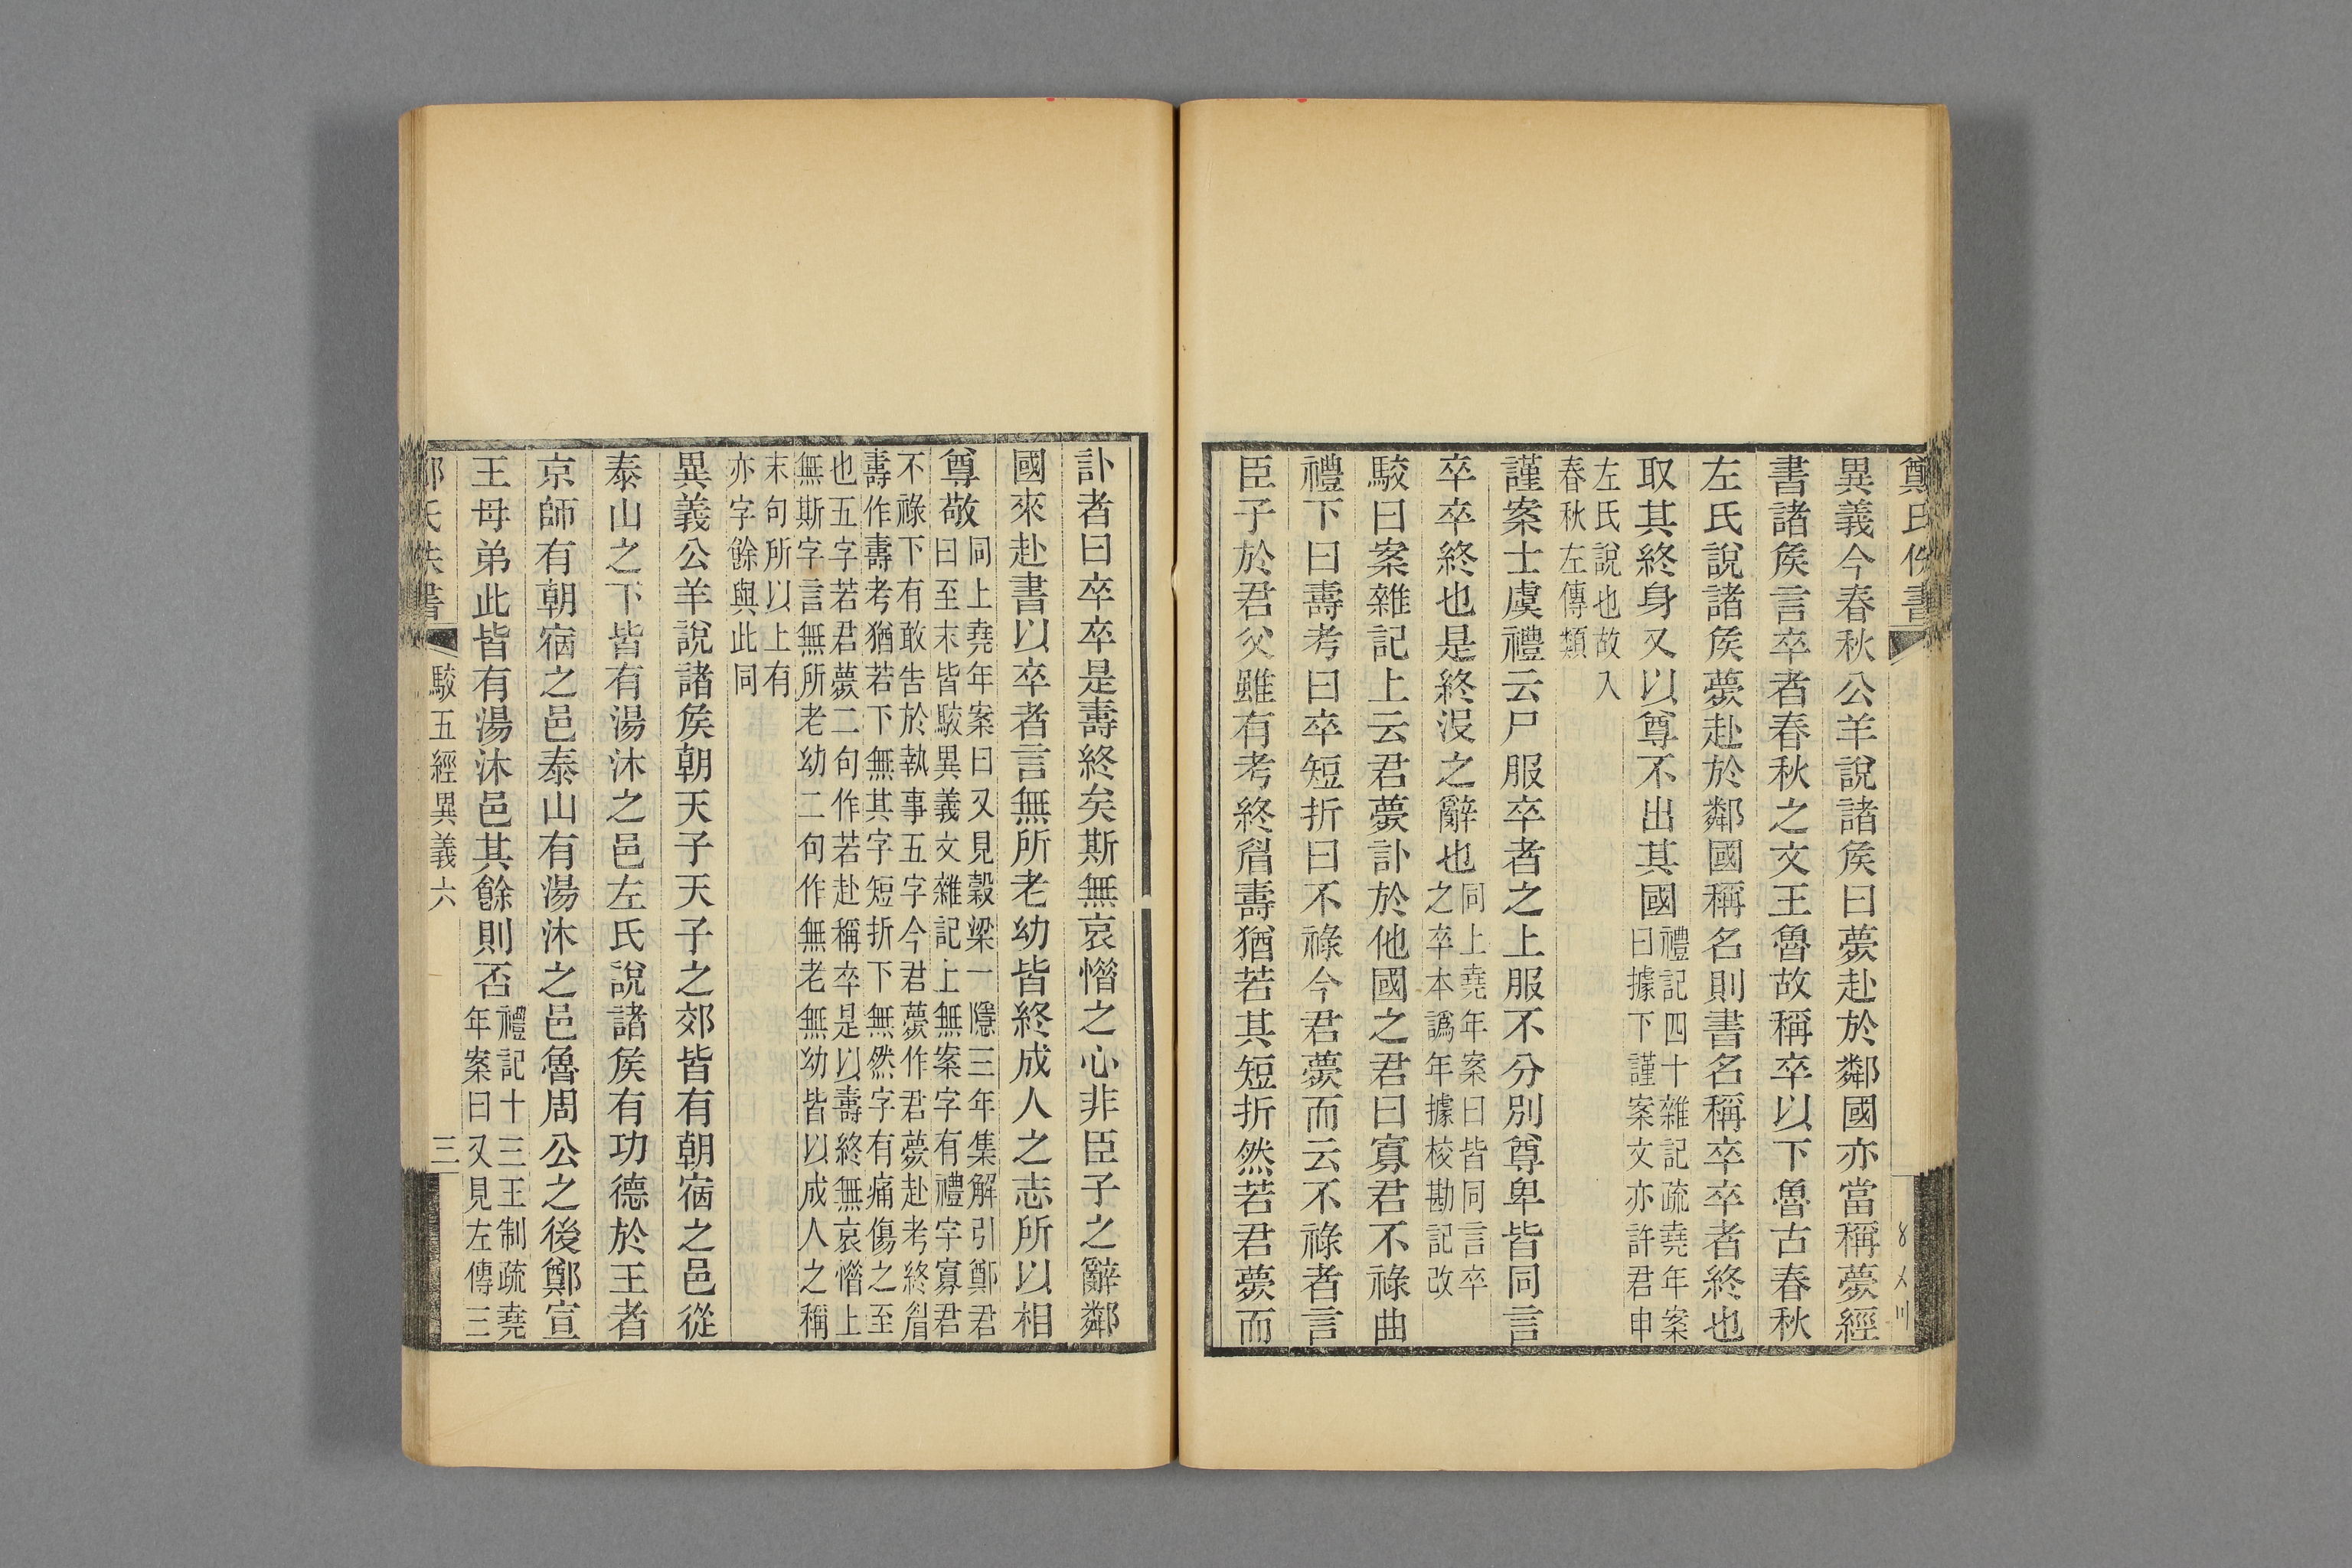 鄭氏佚書
異義今春秋公羊說諸矦曰薨赴於鄰國亦當稱薨經
書諸矦言卒者春秋之文王魯故稱卒以下魯古春秋
左氏說諸矦薨赴於鄰國稱名則書名稱卒卒者終也
取其終身又以尊不出其國
禮記四十雜記疏堯年案
曰據下謹案文亦許君申
左氏說也故入
春秋左傳類
謹案士虞禮云尸服卒者之上服不分別尊卑皆同言
卒卒終也是終沒之辭也
同上堯年案曰皆同言卒
之卒本譌年據校勘記改
駮曰案雜記上云君薨訃於他國之君曰寡君不祿曲
禮下曰壽考曰卒短折曰不祿今君薨而云不祿者言
臣子於君父雖有考終眉壽猶若其短折然若君薨而
訃者曰卒卒是壽終矣斯無哀憯之心非臣子之辭鄰
國來赴書以卒者言無所老幼皆終成人之志所以相
尊敬
同上堯年案曰又見穀梁一隱三年集解引鄭君
曰至末皆駮異義文雜記上無案字有禮字寡君
不祿下有敢告於執事五字今君薨作君薨赴考終眉
壽作壽考猶若下無其字短折下無然字有痛傷之至
也五字若君薨二句作若赴稱卒是以壽終無哀憯上
無斯字言無所老幼二句作無老無幼皆以成人之稱
末句所以上有
亦字餘與此同
異義公羊說諸矦朝天子天子之郊皆有朝宿之邑從
泰山之下皆有湯沐之邑左氏說諸矦有功德於王者
京師有朝宿之邑泰山有湯沐之邑魯周公之後鄭宣
王母弟此皆有湯沐邑其餘則否
禮記十三王制疏堯
年案曰又見左傳三
鄭氏佚書
駮五經異義六
三